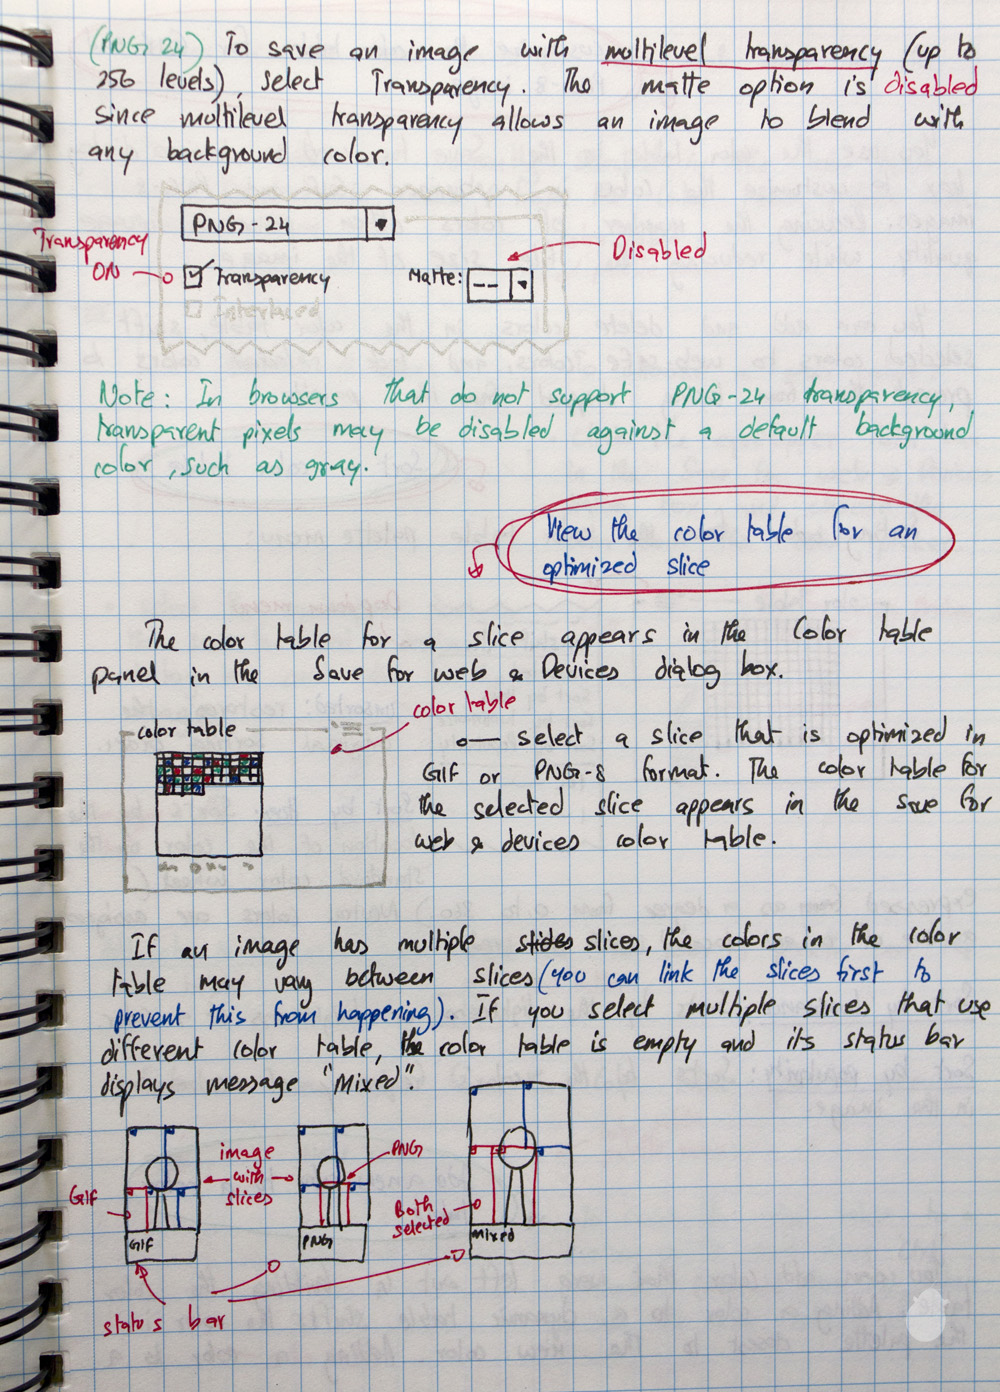 (PNG 24) To save an image with multilevel transparency (up to
256 levels), select Transparency. The matte option is Disabled
since multilevel transparency allows an image to blend with
any background color.
PNG-24
Transparency
ON
Transparency
Matte: --
Disabled
Interlaced
Note: In browsers that do not support PNG-24 transparency,
transparent pixels may be disabled against a default background
color, such as gray.
View the color table for an
optimized slice
The color table for a slice appears in the Color table
panel in the Save for web & Devices dialog box.
color table
color table
select a slice that is optimized in
GIF or PNG-8 format. The color table for
the selected slice appears in the save for
web & devices color table.
If an image has multiple slides slices, the colors in the color
table may vary between slices (you can link the slices first to
prevent this from happening). If you select multiple slices that use
different color table, the color table is empty and its status bar
displays message "Mixed".
image
with
slices
PNG
GIF
Both
selected
GIF
PNG
Mixed
status bar